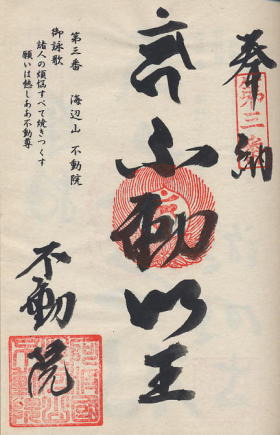 奉納
第三番
不動明王
第三番 海辺山 不動院
御詠歌
諸人の煩悩すべて焼きつくす
願いは しああ不動尊
不動院